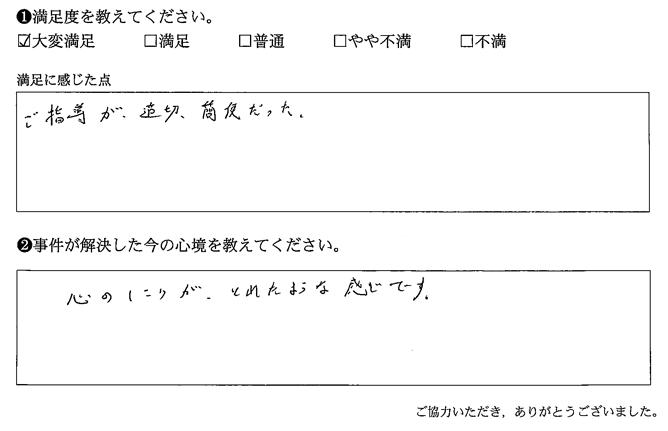 ❶満足度を教えてください。
☑大変満足 □満足 □普通 □やや不満 □不満
満足に感じた点
ご指導が、適切、簡便だった。
❷事件が解決した今の心境を教えてください。
心のしこりが、とれたような感じです。
ご協力いただき，ありがとうございました。